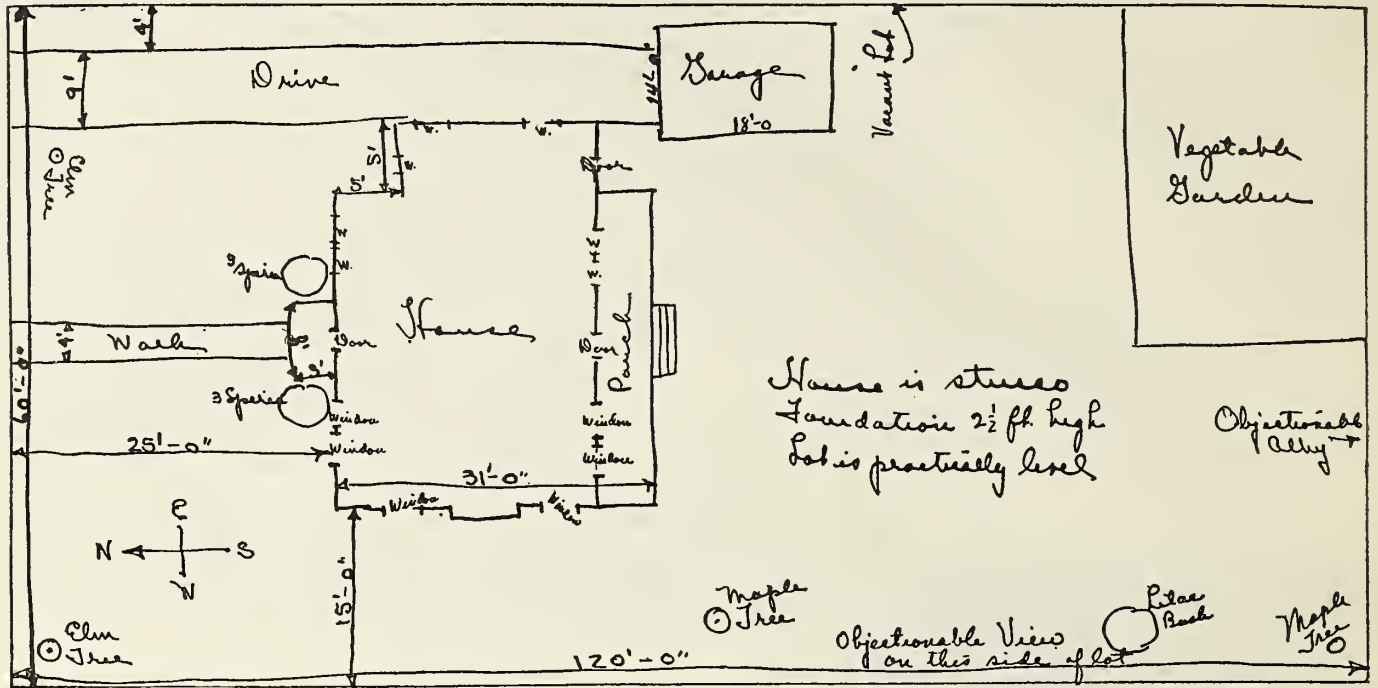 4'
9'
Drive
14'-0"
Garage
18'-0
Vacant Lot
Vegetable
Garden
Elm
Tree
5'
5'
W.
W.
W.
Door
W.
W.
3 Spirea
8'
5'
4'
Walk
Door
House
Door
Porch
3 Spirea
Window
Window
Window
Window
60'-0"
25'-0"
31'-0"
Window
Window
House is stucco
Foundation 2½ ft. high
Lot is practically level
Objectionable
Alley
N
S
15'-0"
Elm
Tree
Maple
Tree
Objectionable View
on this side of lot
Lilac
Bush
Maple
Tree
120'-0"